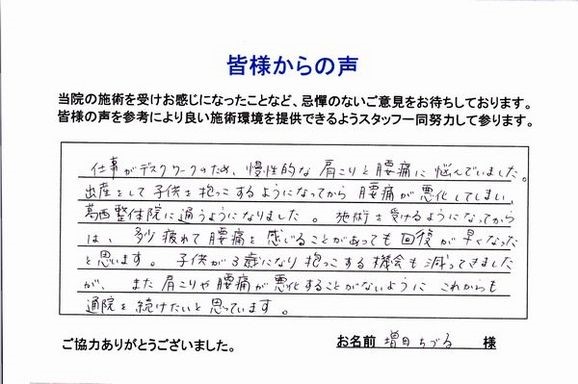 皆様からの声
当院の施術を受けお感じになったことなど、忌憚のないご意見をお待ちしております。
皆様の声を参考により良い施術環境を提供できるようスタッフ一同努力して参ります。
仕事がデスクワークのため、慢性的な肩こりと腰痛に悩んでいました。
出産をして子供を抱っこするようになってから腰痛が悪化してしまい、
葛西整体院に通うようになりました。施術を受けるようになってから
は、多少疲れて腰痛を感じることがあっても回復が早くなった
と思います。子供が3歳になり抱っこする機会も減ってきました
が、また肩こりや腰痛が悪化することがないようにこれからも
通院を続けたいと思っています。
ご協力ありがとうございました。
お名前 増田ちづる 様